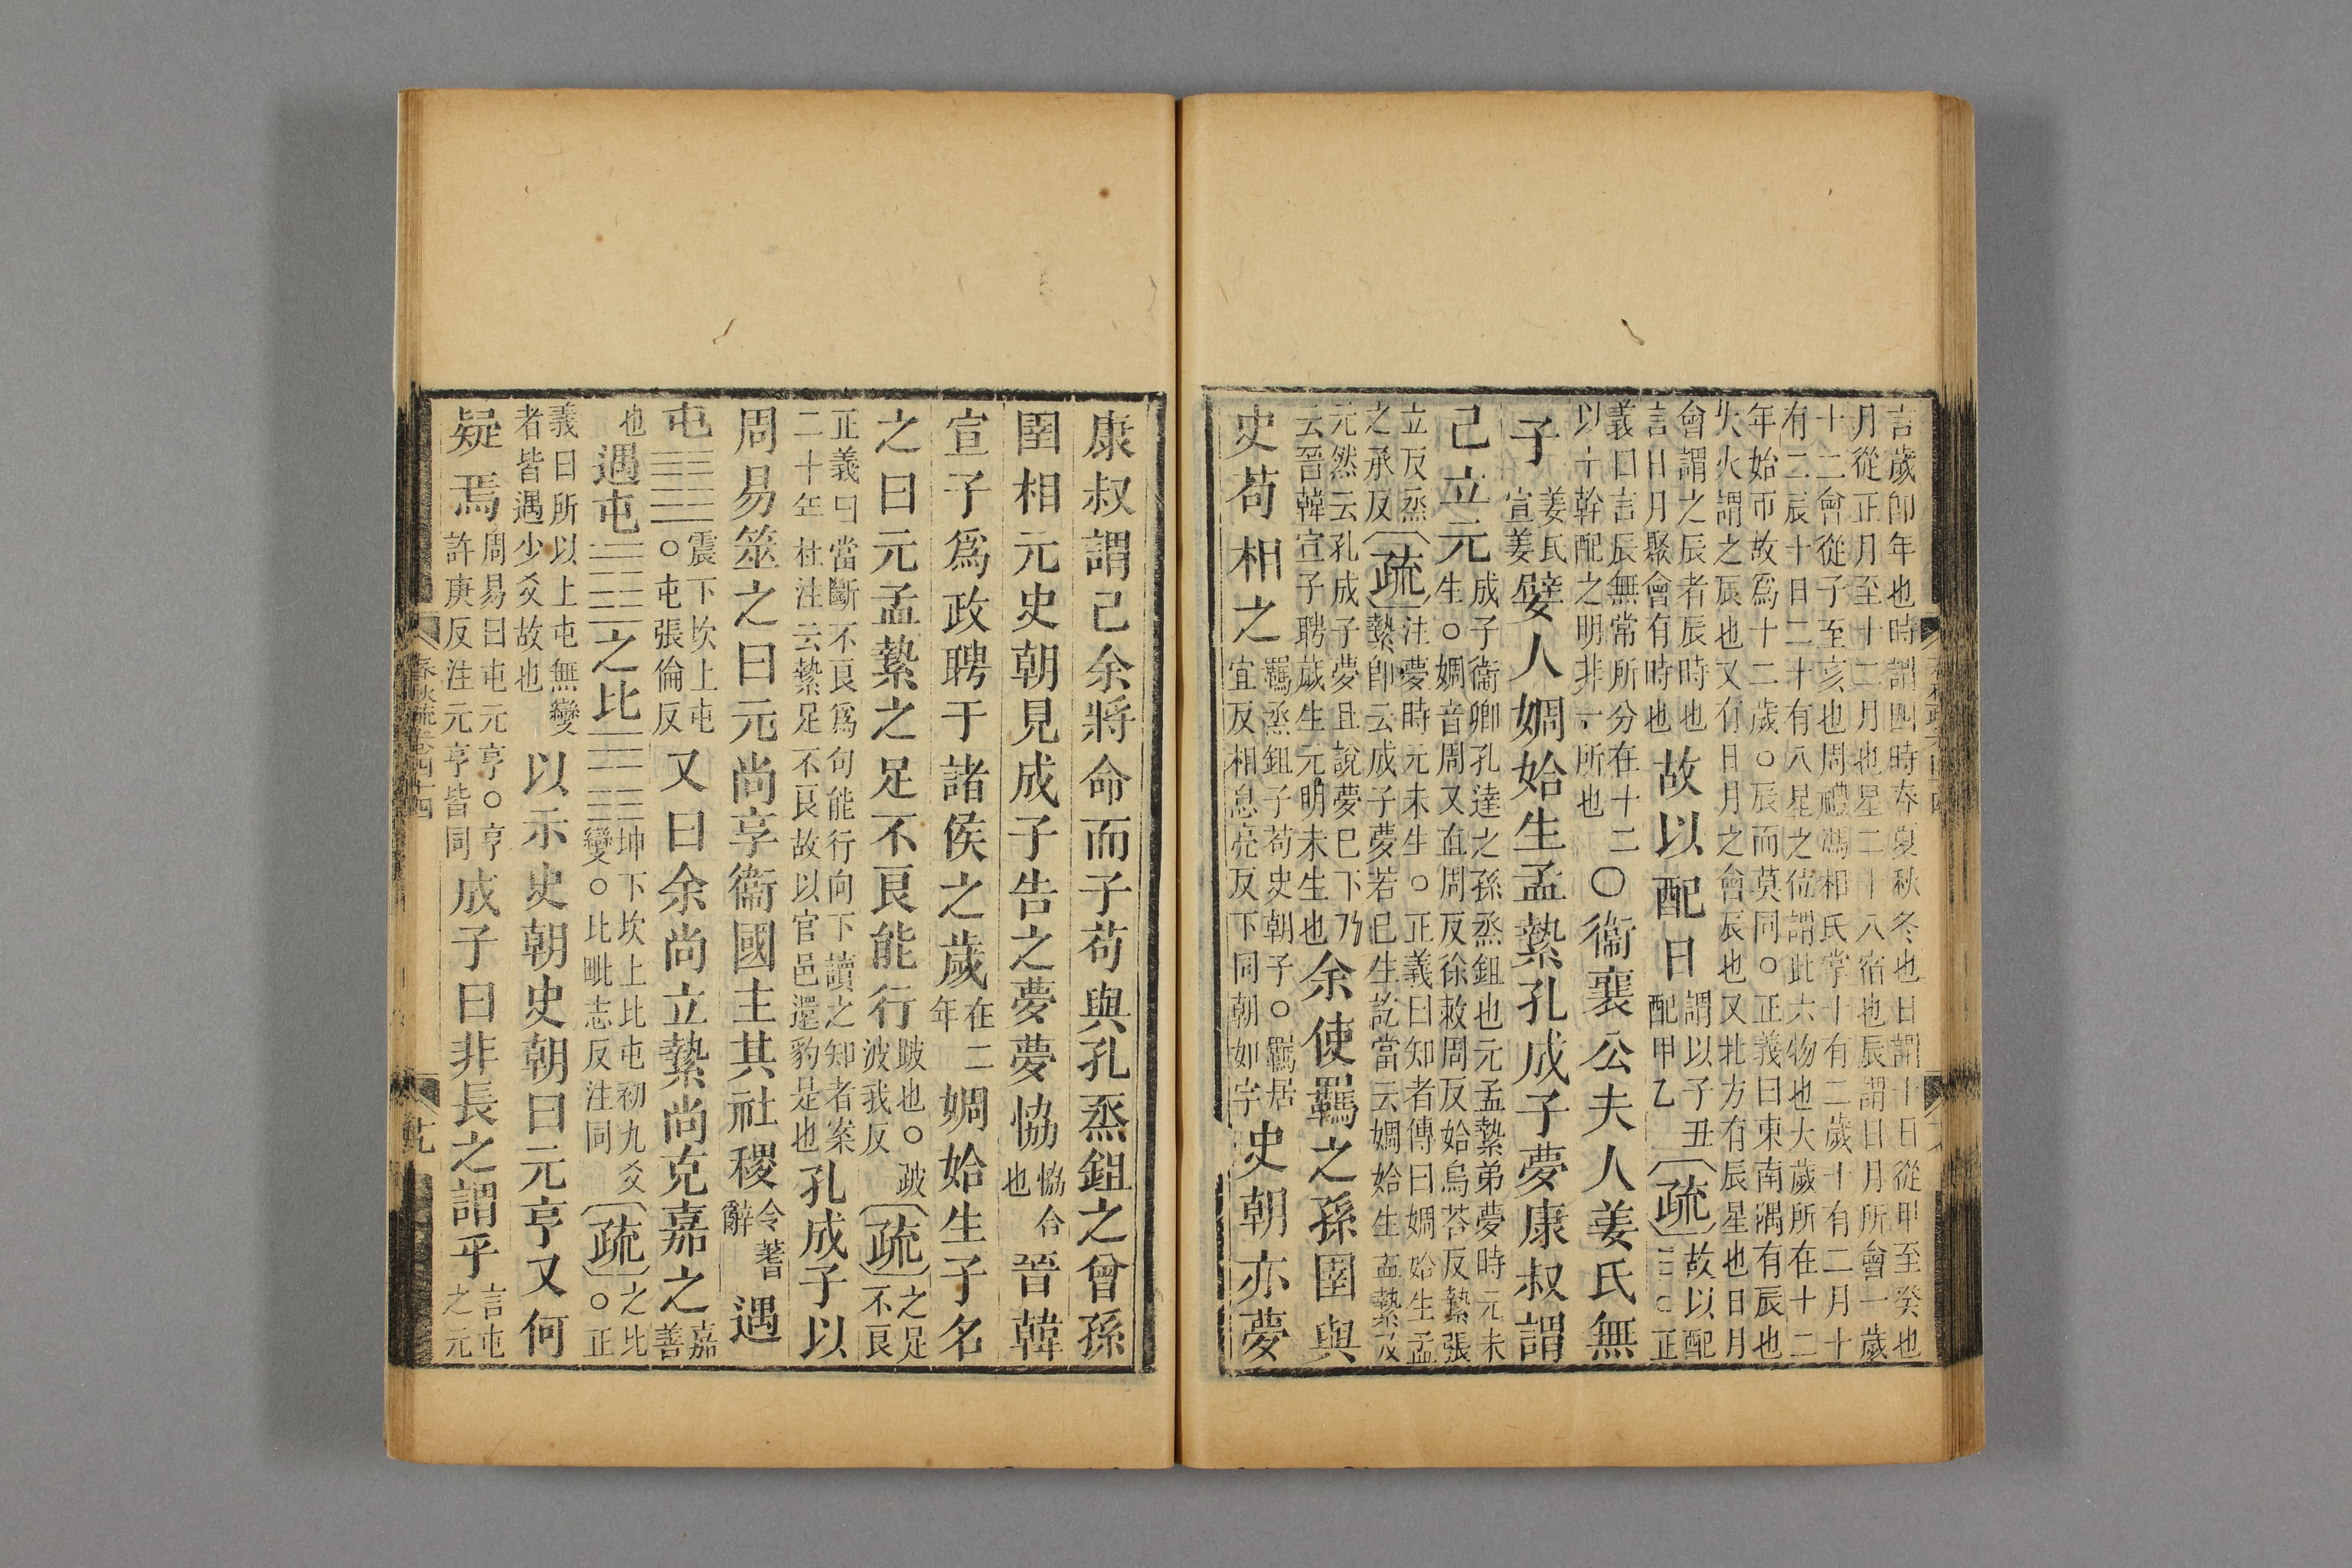 言歲即年也時謂四時春夏秋冬也日謂十日從甲至癸也
月從正月至十二月也星二十八宿也辰謂日月所會一歲
十二會從子至亥也周禮馮相氏掌十有二歲十有二月十
有二辰十日二十有八星之位謂此六物也大歲所在十二
年始帀故爲十二歲○辰而莫同○正義曰東南隅有辰也
大火謂之辰也又有日月之會辰也又北方有辰星也日月
會謂之辰者辰時也言日月聚會有時也故以配日謂以子丑配甲乙疏故以配日○正
義曰言辰無常所分在十二以十幹配之明非一所也○衞襄公夫人姜氏無
子姜氏宣姜嬖人婤姶生孟縶孔成子夢康叔謂
己立元成子衞卿孔達之孫烝鉏也元孟縶弟夢時元未生○婤音周又直周反徐敕周反姶烏荅反縶張
立反烝之承反疏注夢時元未生○正義曰知者傳曰婤姶生孟縶即云成子夢若已生訖當云婤姶生孟縶及
元然云孔成子夢且說夢已下乃云晉韓宣子聘歲生元明未生也余使羈之孫圉與
史苟相之羈烝鉏子苟史朝子○羈居宜反相息亮反下同朝如字史朝亦夢
康叔謂己余將命而子苟與孔烝鉏之曾孫
圉相元史朝見成子告之夢夢協協合也晉韓
宣子爲政聘于諸侯之歲在二年婤姶生子名
之曰元孟縶之足不良能行跛也○跛波我反疏之足不良
正義曰當斷不良爲句能行向下讀之知者案二十年杜注云縶足不良故以官邑還豹是也孔成子以
周易筮之曰元尚享衞國主其社稷令蓍辭遇
屯䷂震下坎上屯○屯張倫反又曰余尚立縶尚克嘉之嘉善
也遇屯䷂之比䷇坤下坎上比屯初九爻變○比毗志反注同疏之比○正
義曰所以上屯無變者皆遇少爻故也以示史朝史朝曰元亨又何
疑焉周易曰屯元亨○亨許庚反注元亨皆同成子曰非長之謂乎言屯之元